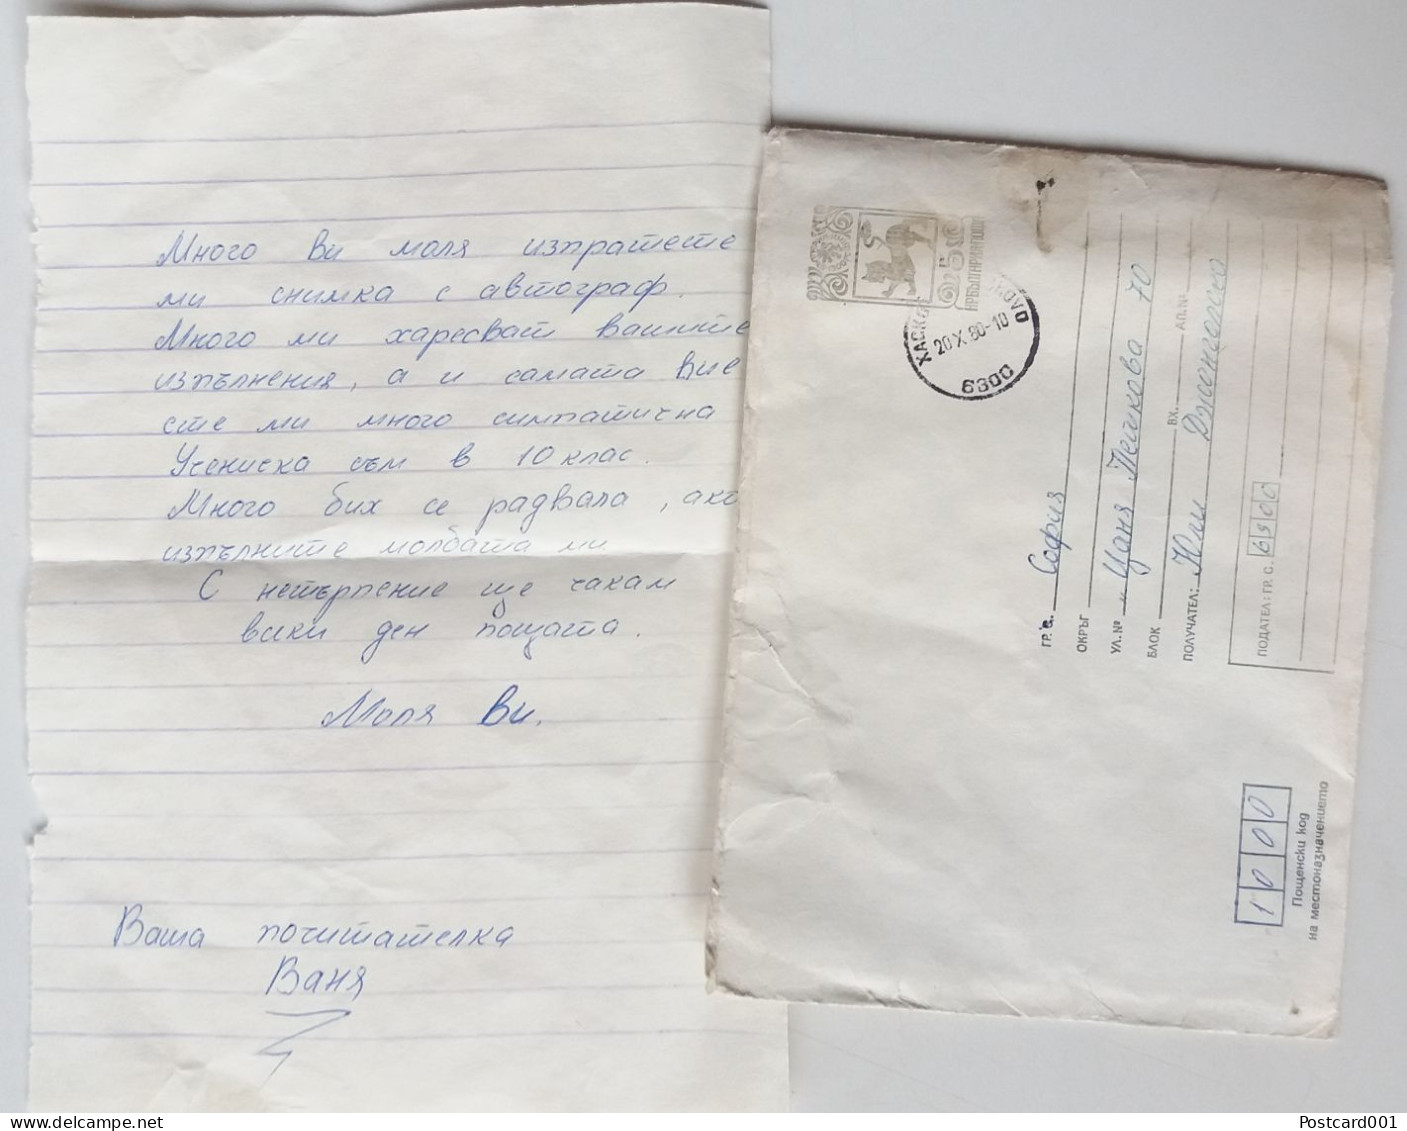 Много Ви моля изпратете
ми снимка с автограф.
Много ми харесват вашите
изпълнения, а и самата Вие
сте ми много симпатична
Ученичка съм в 10 клас.
Много бих се радвала, ако
изпълните молбата ми
С нетърпение ще чакам
всеки ден пощата.
Моля Ви.
Ваша почитателка
Ваня
5
НРБЪЛГАРИЯПОЩА
20 X 80-10
6300
ГР. С. София
ОКРЪГ
УЛ. № "Цаня Пейкова 70
БЛОК ВХ. АП. №
ПОЛУЧАТЕЛ: Юли
ПОДАТЕЛ: ГР. С. 6300
1000
Пощенски код
на местоназначението
Postcard001